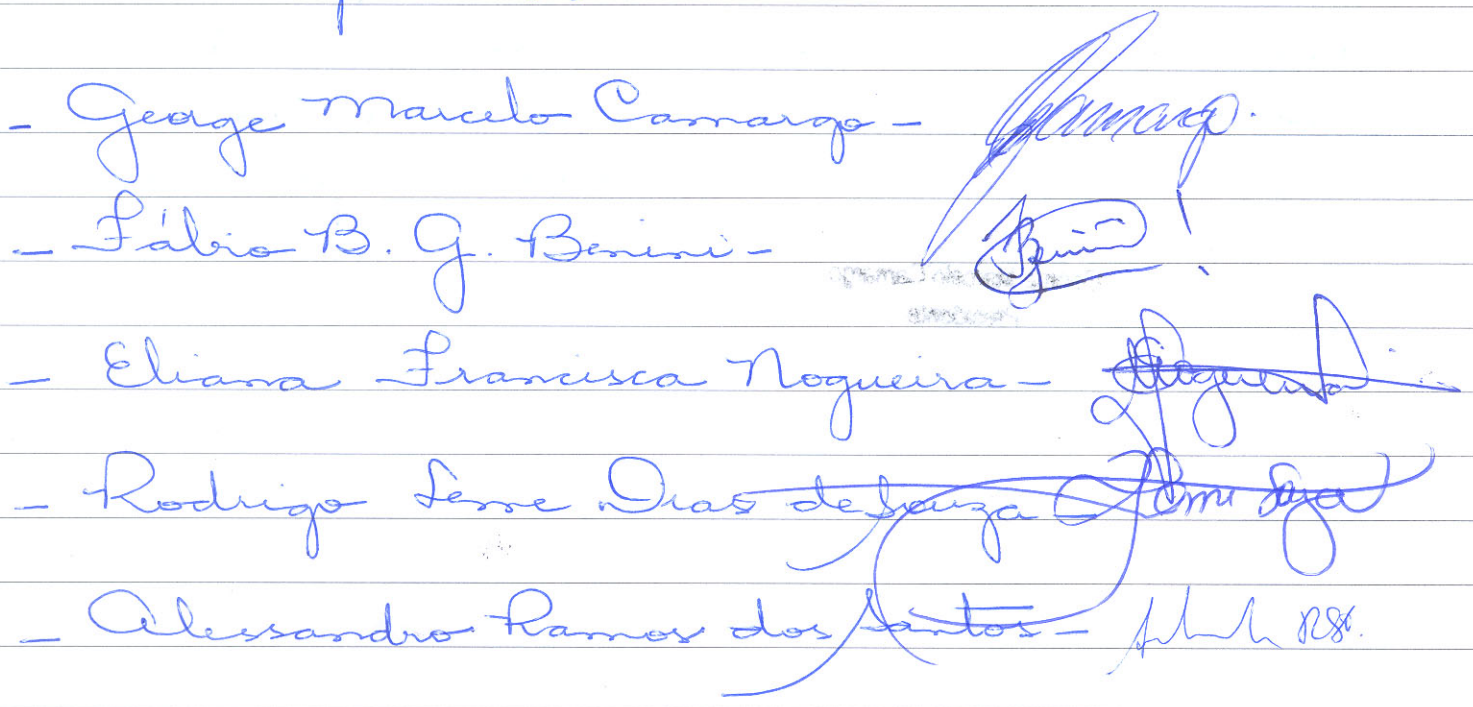 - George Marcelo Camargo - Camargo.
- Fábio B. G. Benini - Benini
- Eliana Francisca Nogueira - Nogueira
- Rodrigo Leme Dias de Souza
- Alessandro Ramos dos Santos -